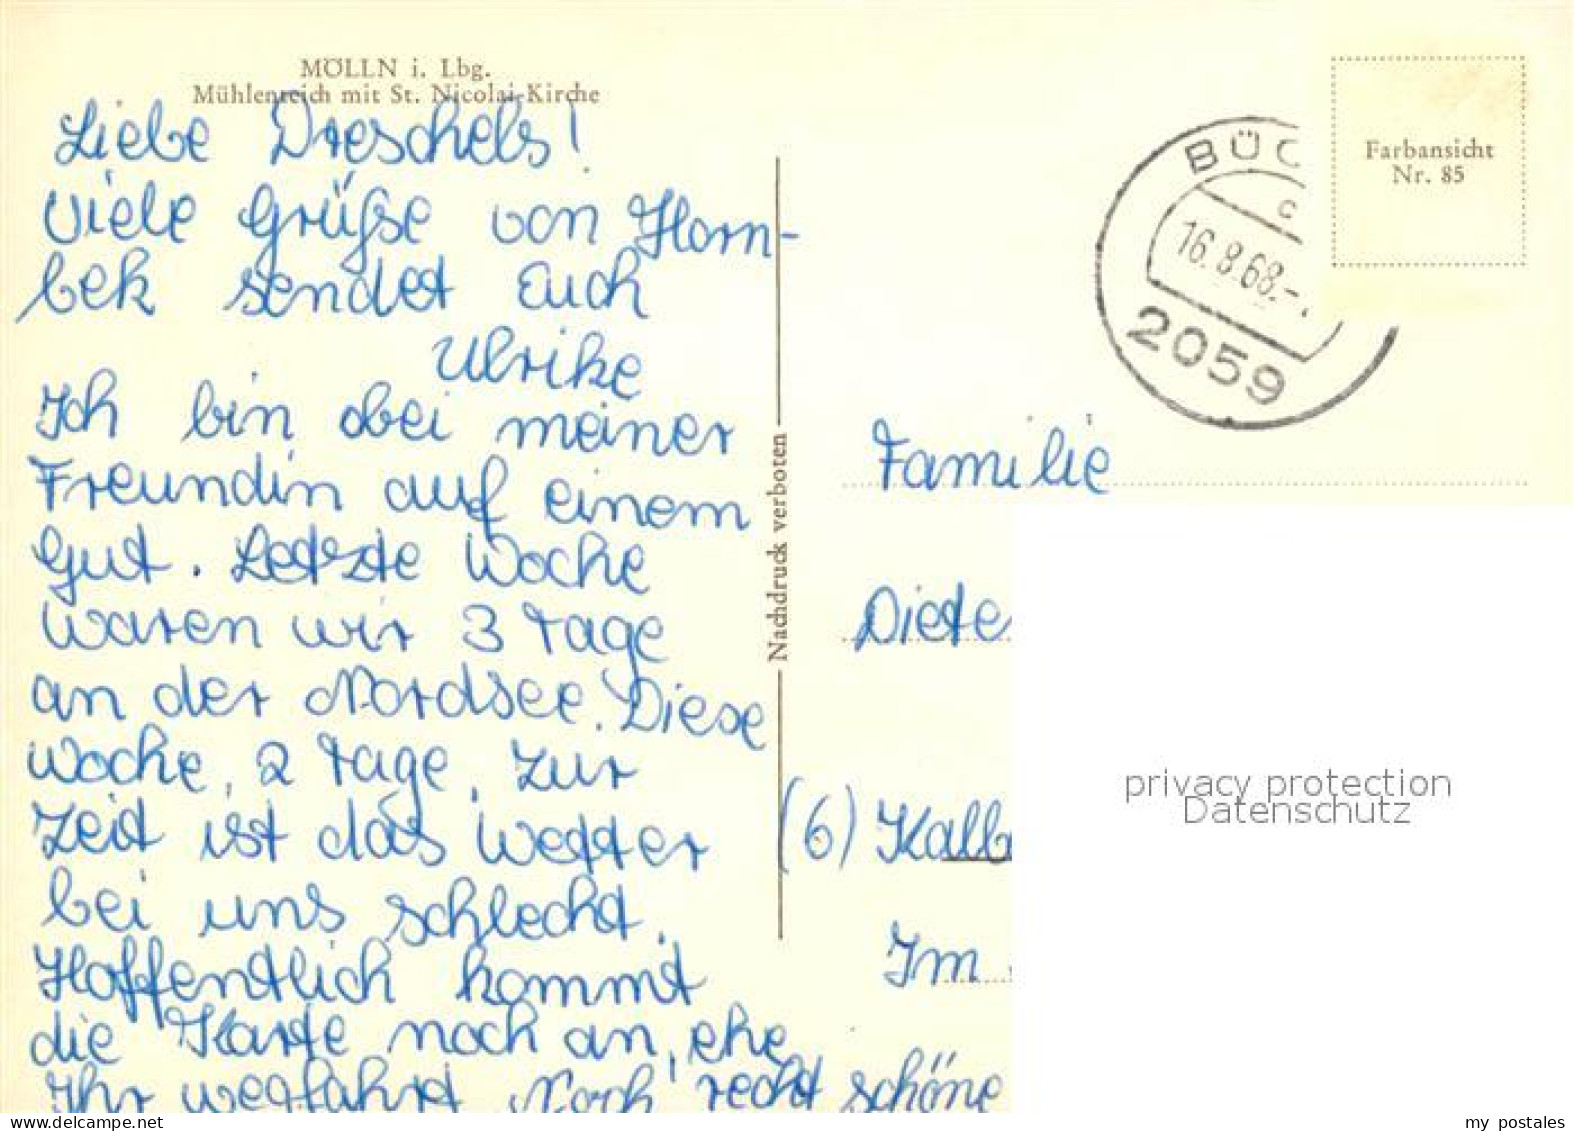 MÖLLN i. Lbg.
Mühlenteich mit St. Nicolai-Kirche
Liebe Dreschels!
Viele Grüße von Horn-
bek sendet Euch
Ulrike
Ich bin bei meiner
Freundin auf einem
Gut. Letzte Woche
waren wir 3 Tage
an der Nordsee. Diese
Woche, 2 Tage, zur
Zeit ist das Wetter
bei uns schlecht.
Hoffentlich kommt
die Karte noch an, ehe
Ihr wegfahrt. Noch recht schöne
Nachdruck verboten
BÜC
c
16.8.68.-
2059
Farbansicht
Nr. 85
Familie
Diete
(6) Kalb
Im
privacy protection
Datenschutz
delcampe.net
my postales